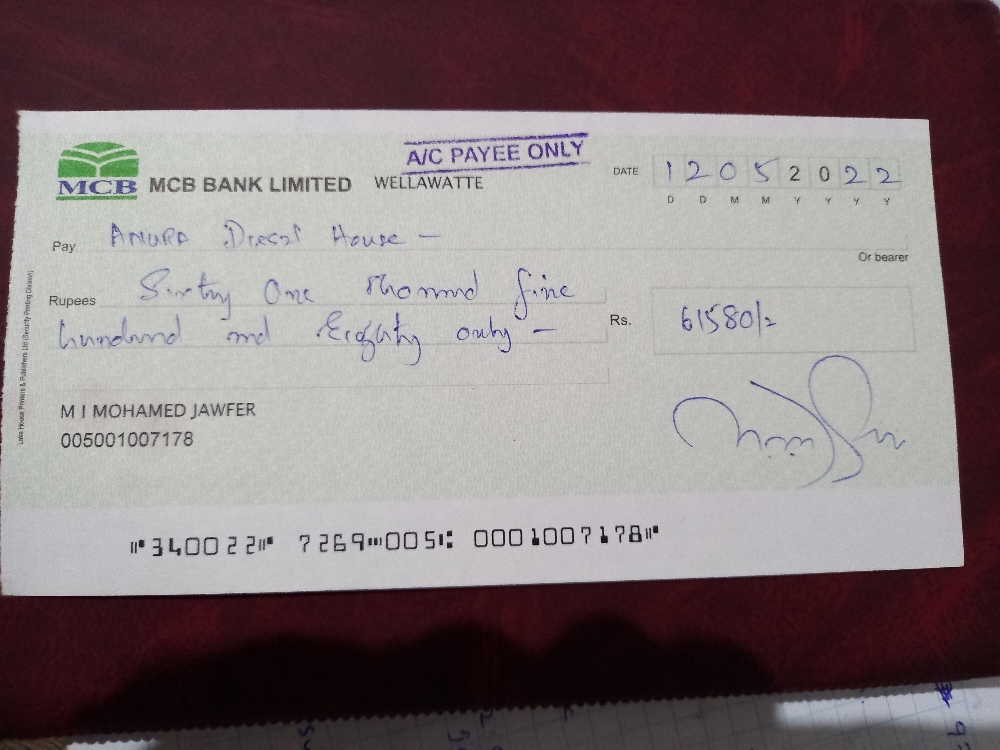 A/C PAYEE ONLY
MCB MCB BANK LIMITED WELLAWATTE
DATE 1 2 0 5 2 0 2 2
D D M M Y Y Y Y
Pay ANURA Diesel House —
Or bearer
Rupees Sixty One Thousand five
hundred and Eighty only —
Rs. 61580/=
M I MOHAMED JAWFER
005001007178
Lake House Printers & Publishers Ltd (Security Printing Division)
⑈340022⑈ 7269⑉005⑆ 0001007178⑈